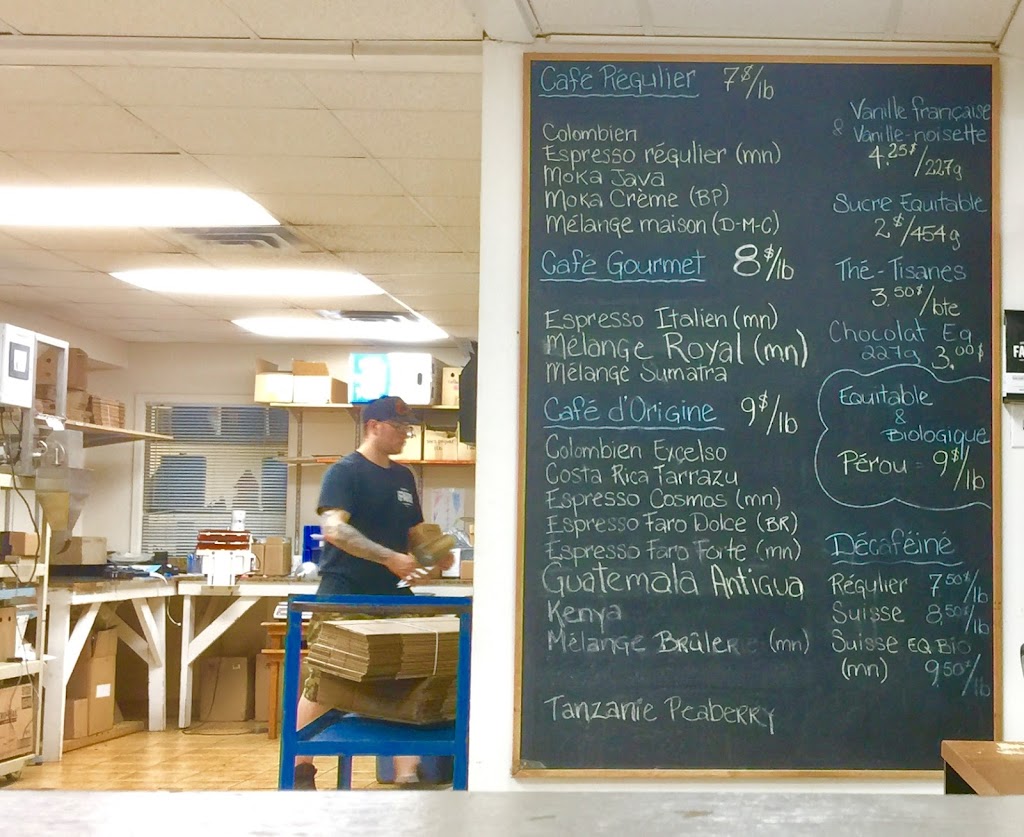 Café Régulier 7$/lb
Colombien
Espresso régulier (mn)
Moka Java
Moka Crème (BP)
Mélange maison (D-M-C)
Café Gourmet 8$/lb
Espresso Italien (mn)
Mélange Royal (mn)
Mélange Sumatra
Café d'Origine 9$/lb
Colombien Excelso
Costa Rica Tarrazu
Espresso Cosmos (mn)
Espresso Faro Dolce (BR)
Espresso Faro Forte (mn)
Guatemala Antigua
Kenya
Mélange Brûler (mn)
Tanzanie Peaberry
Vanille française
& Vanille-noisette
4.25$/227g
Sucre Equitable
2$/454g
Thé-Tisanes
3.50$/bte
Chocolat Eq
227g 3.00$
Equitable
&
Biologique
Pérou = 9$/lb
Décaféiné
Régulier 7.50$/lb
Suisse 8.50$/lb
Suisse EQ Bio
(mn) 9.50$/lb